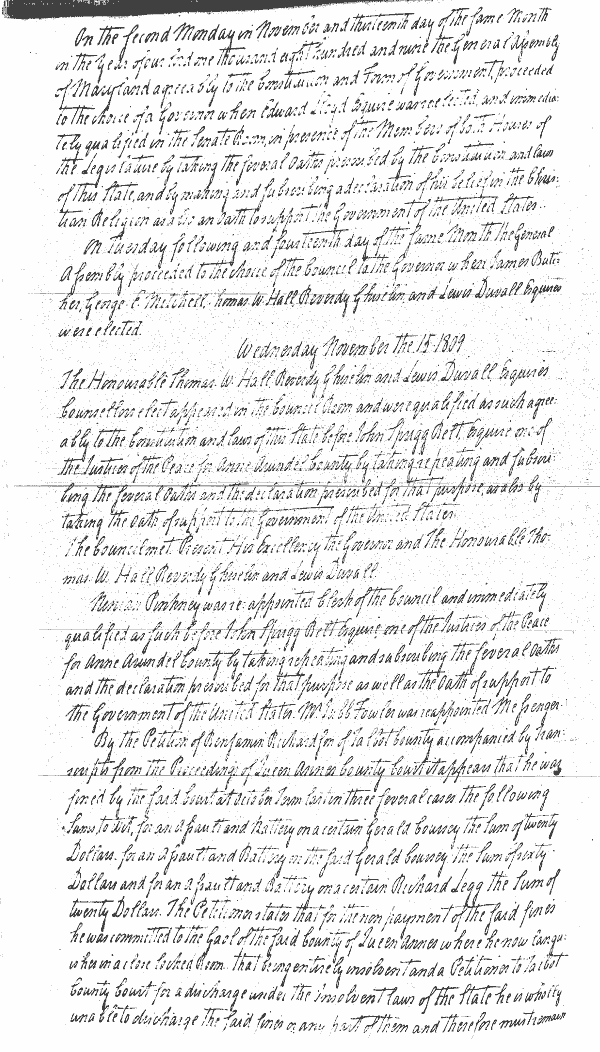 On the second Monday in November and thirteenth day of the same Month
in the Year of our Lord one thousand eight hundred and nine the General Assembly
of Maryland agreeably to the Constitution and Form of Government, proceeded
to the choice of a Governor when Edward Lloyd Esquire was re elected, and immedia-
tely qualified in the Senate Room, in presence of the Members of both Houses of
the Legislature by taking the several Oaths prescribed by the Constitution and laws
of this State, and by making and subscribing a declaration of his belief in the Chris-
tian Religion as also an Oath to support the Government of the United States.
On Tuesday following and fourteenth day of the same Month the General
Assembly proceeded to the choice of the Council to the Governor when James Butc-
her, George E. Mitchell, Thomas W. Hall, Reverdy Ghiselin, and Lewis Duvall Esquires
were elected.
Wednesday November the 15 1809
The Honourable Thomas W. Hall, Reverdy Ghiselin and Lewis Duvall Esquires
Counsellors elect appeared in the Council Room and were qualified as such agree-
ably to the Constitution and laws of this State before John Sprigg Belt, Esquire one of
the Justices of the Peace for Anne Arundel County by taking repeating and subscri-
bing the several Oaths and the declaration prescribed for that purpose, as also by
taking the Oath of support to the Government of the United States.
The Council met. Present His Excellency the Governor and The Honourable Tho-
mas. W. Hall, Reverdy Ghiselin and Lewis Duvall.
Ninian Pinkney was re-appointed Clerk of the Council and immediately
qualified as such before John Sprigg Belt Esquire one of the Justices of the Peace
for Anne Arundel County by taking repeating and subscribing the several Oaths
and the declaration prescribed for that purpose as well as the Oath of support to
the Government of the United States. Mr. Jubb Fowler was reappointed Messenger.
By the Petition of Benjamin Richardson of Talbot County accompanied by tran-
scripts from the Proceedings of Queen Annes County Court it appears that he was
fined by the said Court at October Term last in three several cases the following
Sums, to wit, for an Assault and Battery on a certain Gerald Coursey the Sum of twenty
Dollars. for an Assault and Battery on the said Gerald Coursey the Sum of sixty
Dollars and for an Assault and Battery on a certain Richard Legg the Sum of
twenty Dollars. The Petitioner states that for the non payment of the said fines
he was committed to the Gaol of the said County of Queen Annes where he now langu-
ishes in a close locked Room. That being entirely insolvent and a Petitioner to Talbot
County Court for a discharge under the insolvent laws of the State he is wholly
unable to discharge the said fines or any part of them and therefore must remain